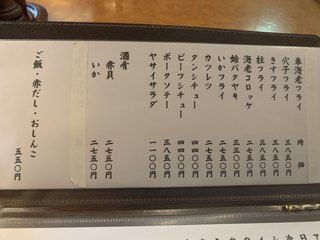 車海老フライ 時価
穴子フライ 三八五〇円
きすフライ 三八五〇円
柱フライ 三八五〇円
海老コロッケ 二七五〇円
蛤バタヤキ 三三〇〇円
いかフライ 二七五〇円
カツレツ 二七五〇円
タンシチュー 四四〇〇円
ビーフシチュー 四四〇〇円
ポークソテー 三八五〇円
ヤサイサラダ 一一〇〇円
酒肴
赤貝 二七五〇円
いか 二七五〇円
ご飯・赤だし・おしんこ 五五〇円